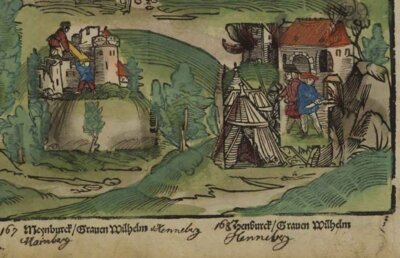 167 Meynburck/Graven Wilhelm Henneberg
Mainberg
168 Henburck/Graven Wilhelm
Henneberg